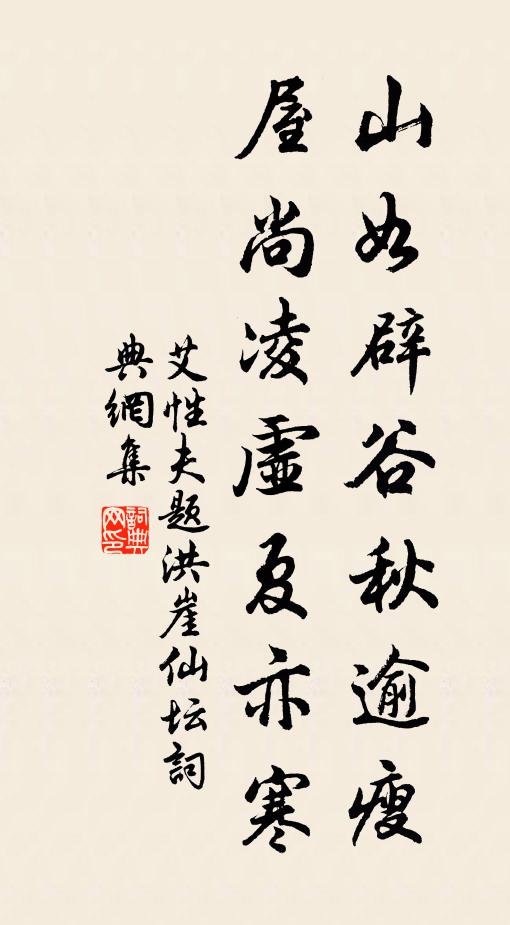 山如辟谷秋逾瘦
屋尚凌虛夏亦寒
艾性夫题洪崖仙坛詞
典網集
詞典网印